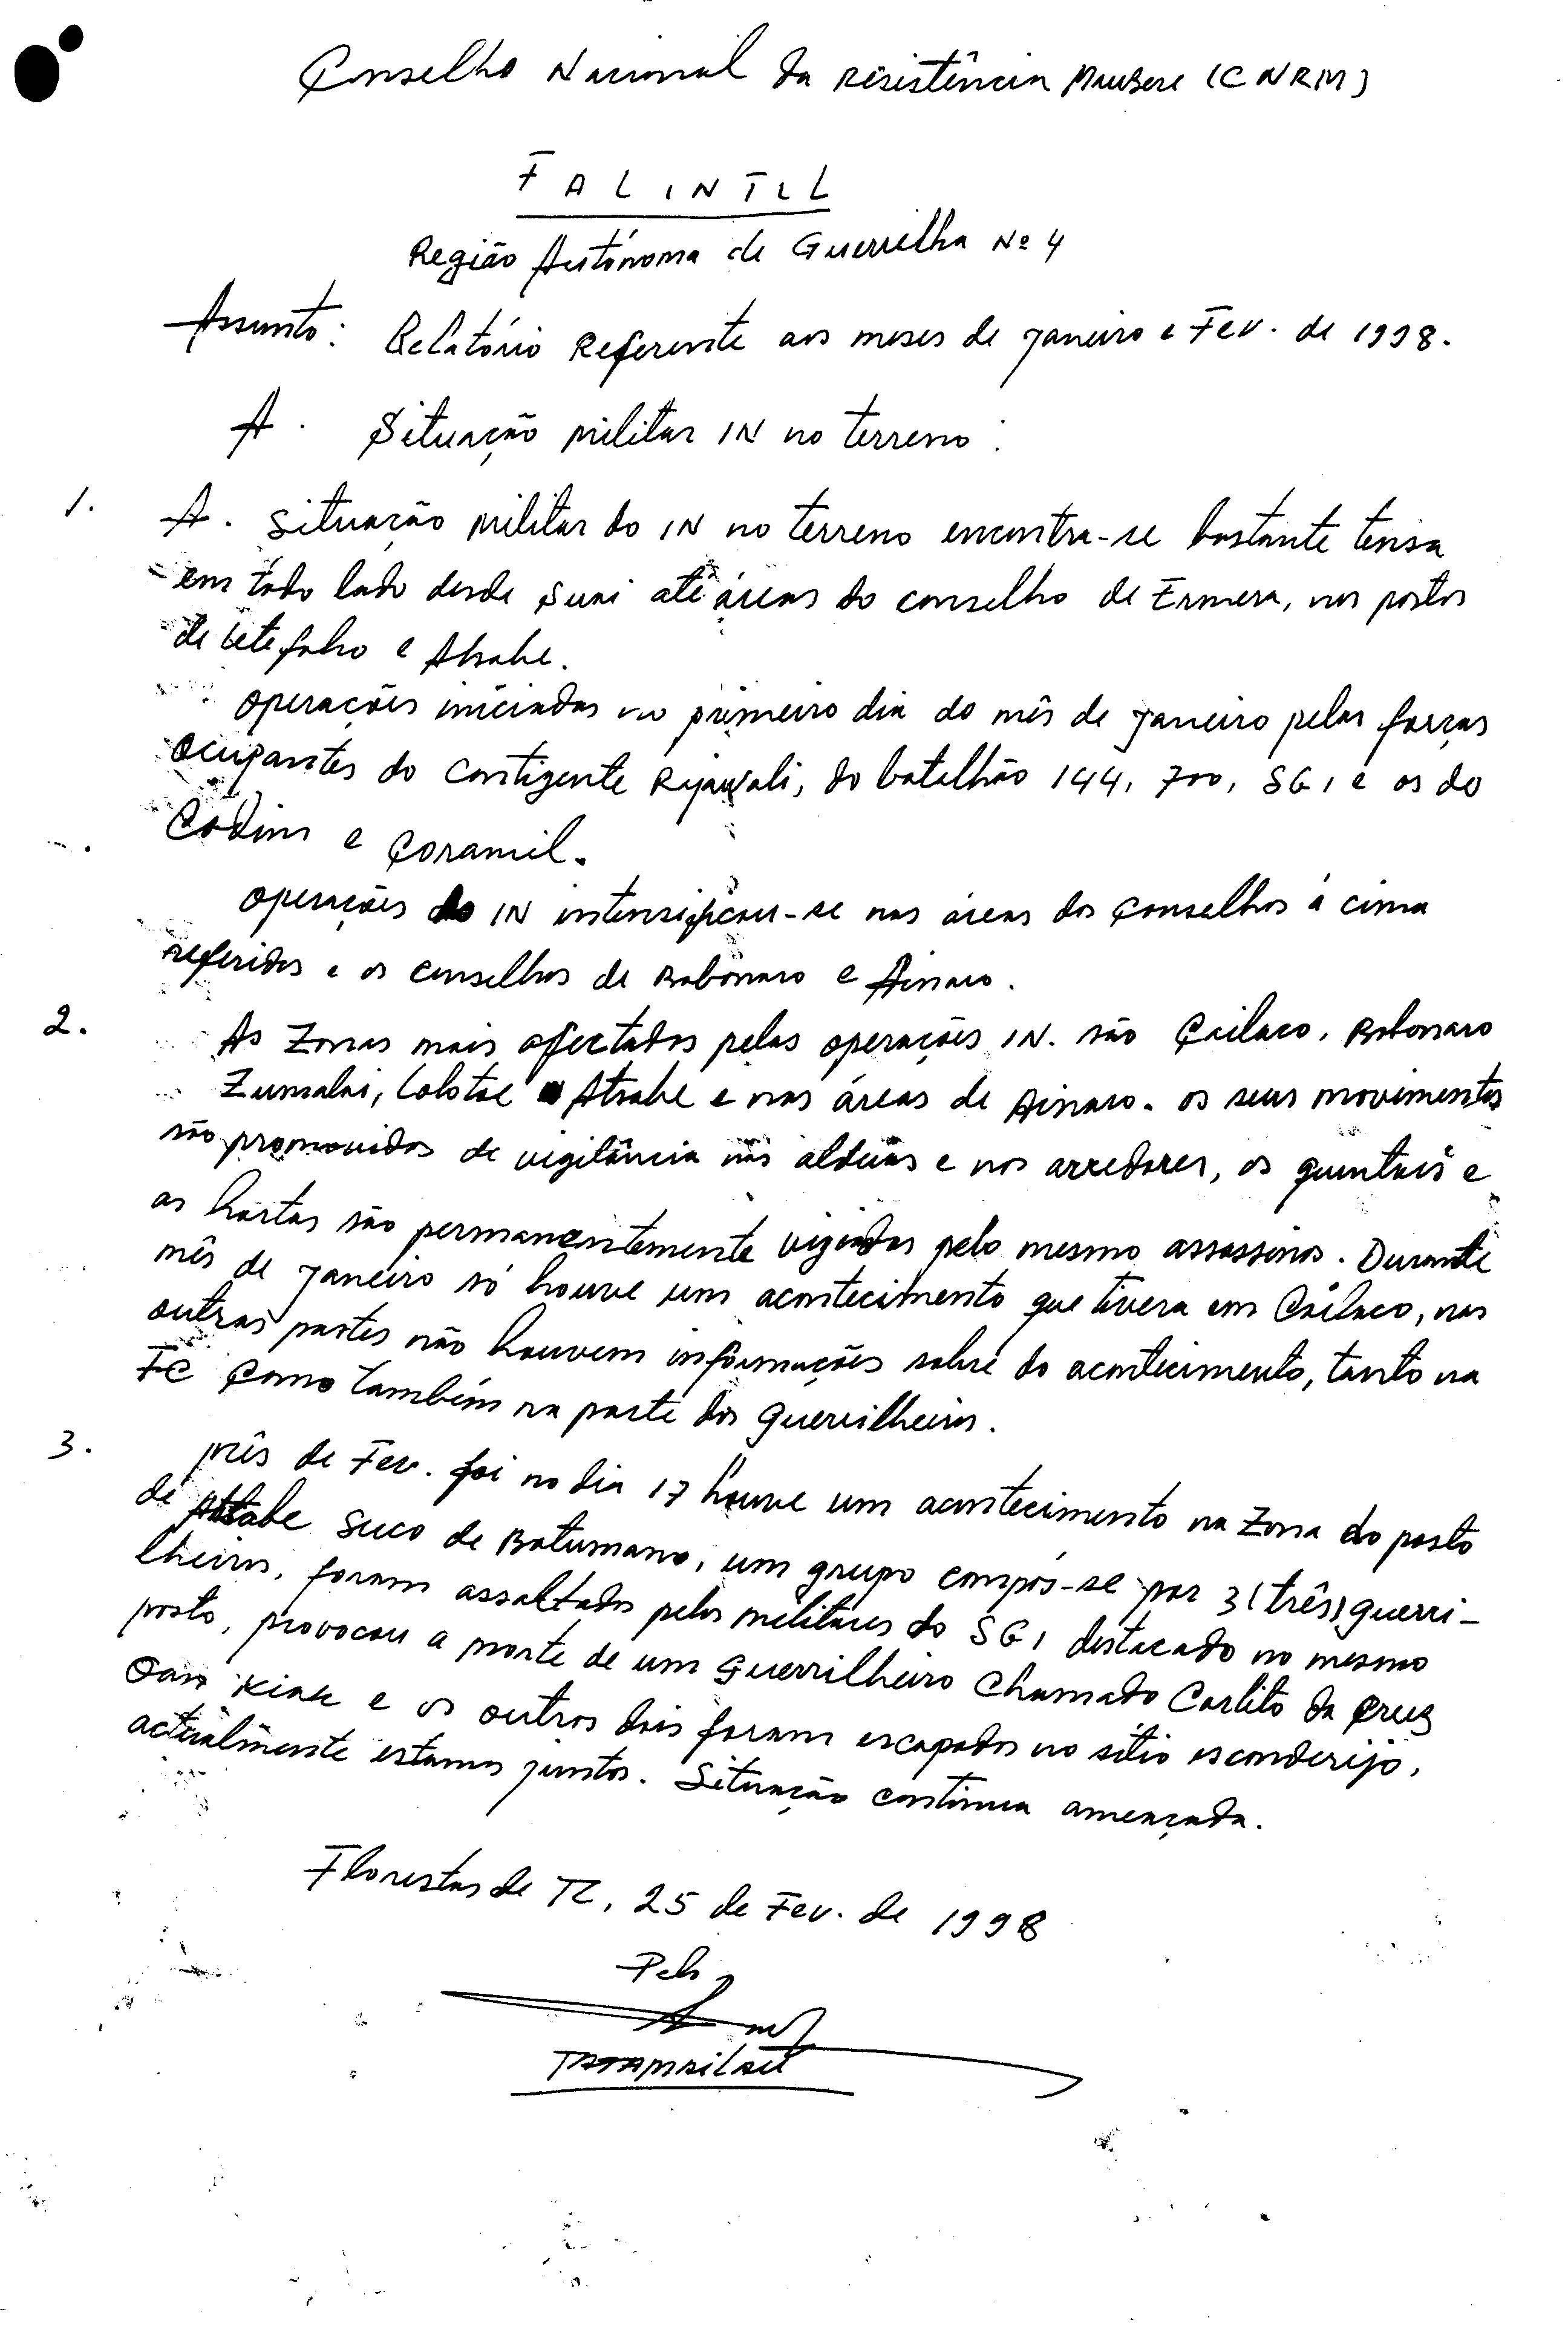 Conselho Nacional da Resistência Maubere (CNRM)
FALINTIL
Região Autónoma de Guerrilha Nº 4
Assunto: Relatório Referente aos meses de janeiro e Fev. de 1998.
A. Situação militar IN no terreno:
1. A. Situação militar do IN no terreno encontra-se bastante tensa
em todo lado desde Suai até áreas do conselho de Ermera, nos postos
de Letefoho e Atsabe.
Operações iniciadas no primeiro dia do mês de janeiro pelas forças
Ocupantes do Contigente Rajawali, do batalhão 144, 700, SGI e os do
Codim e Coramil.
Operações do IN intensificou-se nas áreas dos Conselhos á cima
referidos e os conselhos de Bobonaro e Ainaro.
2. As Zonas mais afectadas pelas operações IN. são Cailaco, Bobonaro
Zumalai, Lolotoe Atsabe e nas áreas de Ainaro. os seus movimentos
são promovidos de vigilância nas aldeias e nos arredores, os quintais e
as hortas são permanentemente vigiadas pelo mesmo assassinos. Durante
mês de janeiro só houve um acontecimento que tivera em Cailaco, nas
outras partes não houvem informações sobre do acontecimento, tanto na
FC Como também na parte dos guerrilheiros.
3. Mês de Fev. foi no dia 17 houve um acontecimento na Zona do posto
de Atsabe Suco de Batumano, um grupo compôs-se por 3 (três) guerri-
lheiros, foram assaltados pelos militares do SGI destacado no mesmo
posto, provocou a morte de um Guerrilheiro Chamado Carlito da Cruz
Oan Kiak e os outros dois foram escapados no sítio esconderijo,
actualmente estamos juntos. Situação continua ameaçada.
Florestas de TL, 25 de Fev. de 1998
Pelo